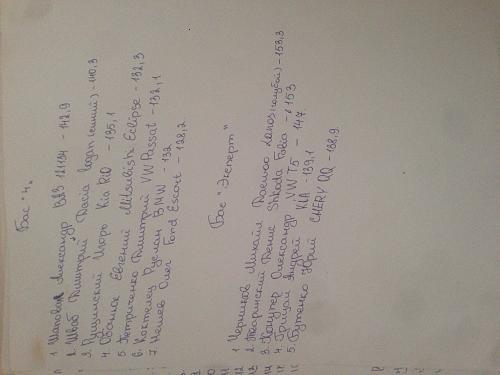 Бас "4"
1 Шаповал Александр ВАЗ 21134 - 142,9
2. Швав Дмитрий Dacia Logan (синий) - 140,3
3. Рущинский Игорь Kia Rio - 135,1
4. Обанюк Евгений Mitsubishi Eclipse - 132,3
5 Петриченко Дмитрий VW Passat - 132,1
6. Коктелец Руслан BMW - 132
7 Нешев Олег Ford Escort - 128,2
Бас "Эксперт"
1 Черников Михайл Daewoo Lanos (голубой) - 158,3
2. Тваринский Денис Shkoda Fabia - 153
3. Кондтер Олександр VW T5 - 147
4. Грицай Андрей KIA - 139,1
5. Бутенко Юрий CHERY QQ - 138,9